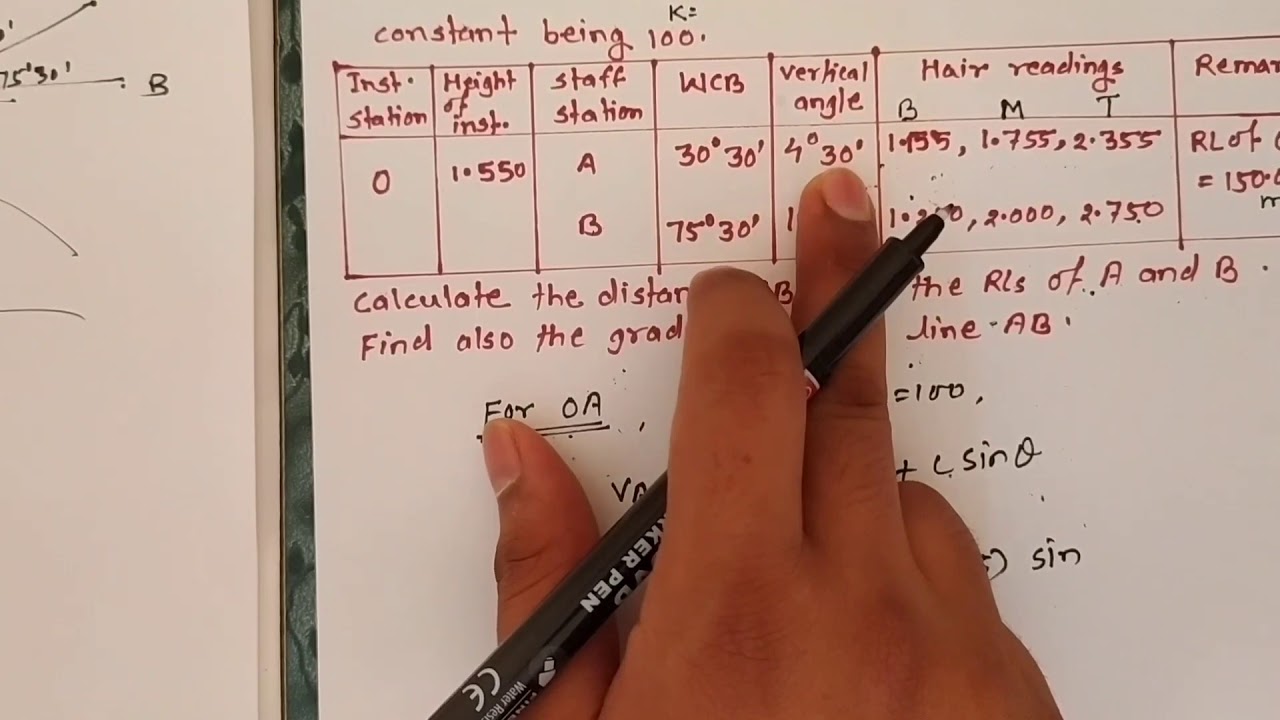 75°30' B
K=
constant being 100.
Inst. station Height of inst. staff station WCB vertical angle Hair readings
B M T
O 1.550 A 30°30' 4°30' 1.155, 1.755, 2.355 RL of
= 150.
m
B 75°30' 2.000, 2.750
Calculate the the RLs of A and B.
Find also the line AB.
For OA, =100,
+ C sinθ
sin
MARKER PEN
CE